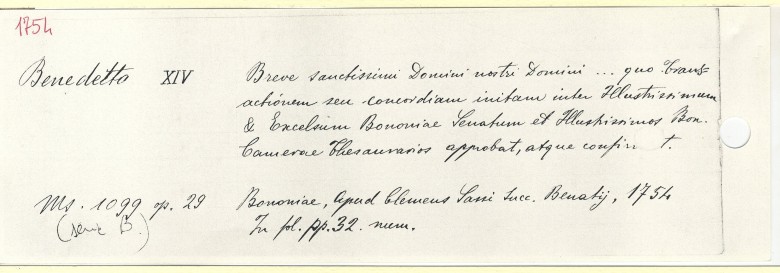 1754
Benedetto XIV
Breve sanctissimi Domini nostri Domini ... quo trans=
actionem seu concordiam initam inter Illustrissimum
& Excelsum Bononiae Senatum et Illustrissimos Bon.
Camerae Thesaurarios approbat, atque confir t.
Ms. 1099 op. 29
(serie B.)
Bononiae, Apud Clemens Sassi Succ. Benatij, 1754
In fol. pp. 32. num.